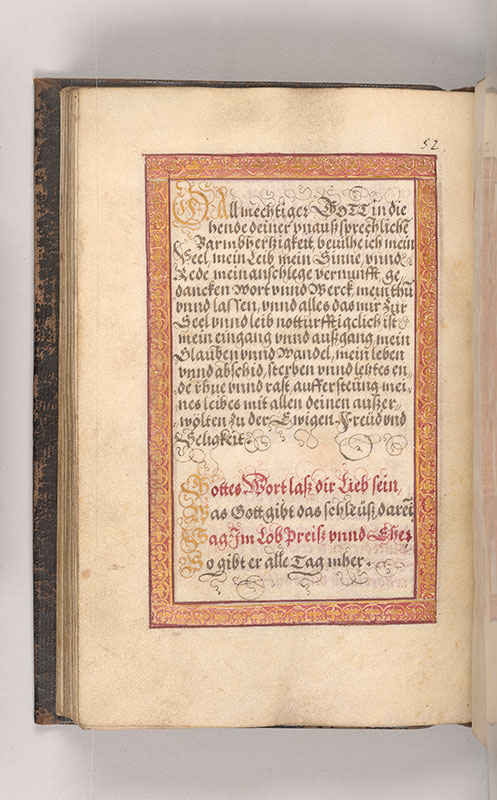 52
O Allmechtiger GOTT in die
hende deiner vnaußsprechlichē
Barmbhertzigkeit beuilhe ich mein
Seel, mein Leib mein Sinne, vnnd
Rede mein anschlege vernunfft, ge„
dancken Wort vnnd Werck, mein thū
vnnd lassen, vnnd alles das mir zur
Seel vnnd leib notturfftigclich ist
mein eingang vnnd außgang mein
Glauben vnnd Wandel, mein leben
vnnd abschid, sterben vnnd letztes en„
de rhue vnnd rast, aufferstēung mei„
nes leibes mit allen deinen außer„
wölten zu der Ewigen Freüd vnd
Seligkeit.
Gottes Wort laß dir Lieb sein,
Was Gott gibt das schleüß darēi
Sag Im Lob Preiß vnnd Eher
So gibt er alle Tag mher.